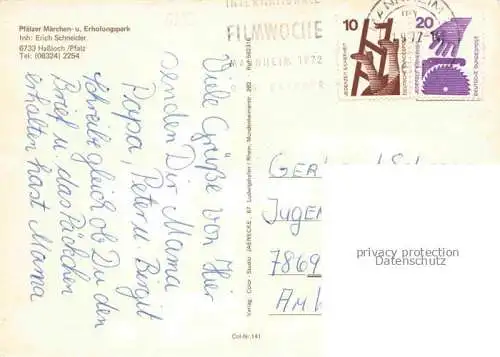 Pfälzer Märchen- u. Erholungspark
Inh: Erich Schneider
6733 Haßloch/Pfalz
Tel: (06324) 2254
Viele Grüße von Hier
senden Dir Mama
Papa, Peter u. Birgit
Schreibe gleich ob Du den
Brief u. das Päckchen
erhalten hast Mama
Verlag Color Studio JAENECKE 67 Ludwigshafen / Rhein, Mundenheimerstr. 262
Col-Nr. 141
INTERNATIONALE
FILMWOCHE
MANNHEIM 1972
MANNHEIM
10
JEDERZEIT SICHERHEIT
DEUTSCHE BUNDESPOST
20
JEDERZEIT SICHERHEIT
DEUTSCHE BUNDESPOST
JUGEN
7869
privacy protection
Datenschutz